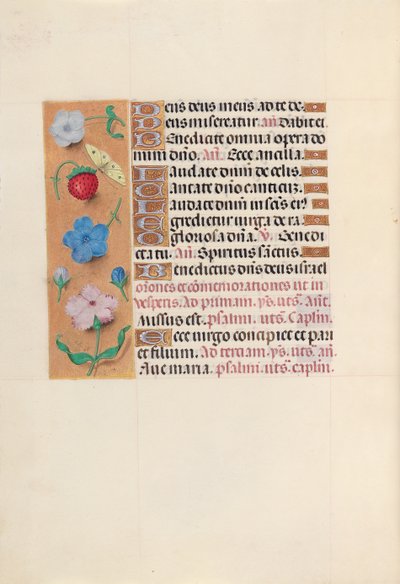 Deus deus meus ad te de
Deus misereatur. an̄. Dabit ei.
Benedicite omnia opera do
mini dn̄o. An̄. Ecce ancilla.
Laudate dn̄m de celis.
Cantate dn̄o canticū.
Laudate dn̄m in sc̄is eiꝰ
Egredietur uirga de ra.
O gloriosa dn̄a. V. Benedi
cta tu. An̄. Spiritus sāctus.
Benedictus dn̄s deus israel
or̄ones et cōmemorationes ut in
vesperis. Ad primam. ys. uts̄. Ant̄.
Missus est. psalmi. uts̄. Caplm̄.
Ecce virgo concipiet et pari
et filium. Ad terciam. ys. uts̄. an̄.
Aue maria. psalmi. uts̄. caplm̄.